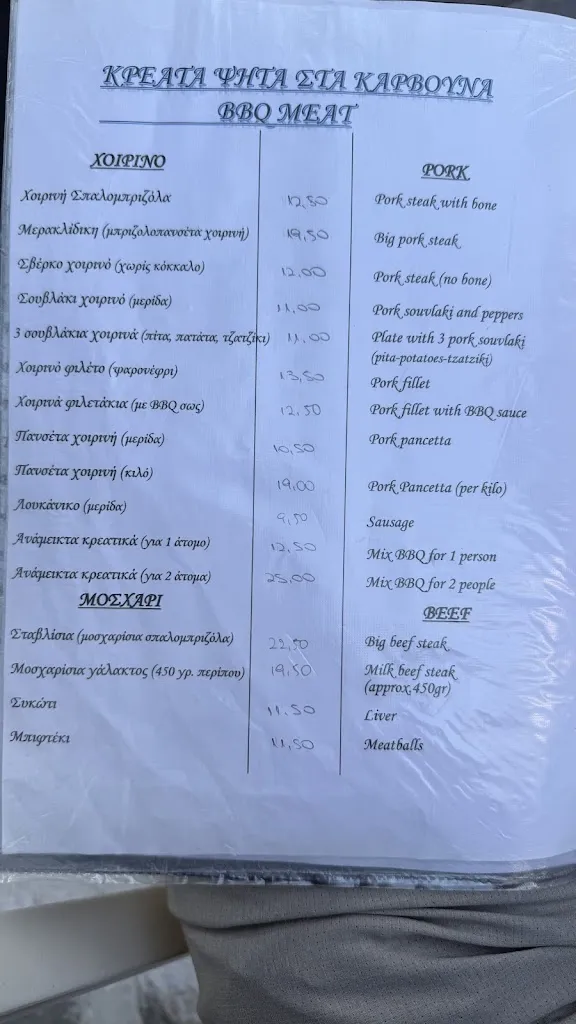 ΚΡΕΑΤΑ ΨΗΤΑ ΣΤΑ ΚΑΡΒΟΥΝΑ
BBQ MEAT
ΧΟΙΡΙΝΟ PORK
Χοιρινή Σπαλομπριζόλα 12,50 Pork steak with bone
Μερακλίδικη (μπριζολοπανσέτα χοιρινή) 19,50 Big pork steak
Σβέρκο χοιρινό (χωρίς κόκκαλο) 12,00 Pork steak (no bone)
Σουβλάκι χοιρινό (μερίδα) 11,00 Pork souvlaki and peppers
3 σουβλάκια χοιρινά (πίτα, πατάτα, τζατζίκι) 11,00 Plate with 3 pork souvlaki
(pita-potatoes-tzatziki)
Χοιρινό φιλέτο (ψαρονέφρι) 13,50 Pork fillet
Χοιρινά φιλετάκια (με BBQ σως) 12,50 Pork fillet with BBQ sauce
Πανσέτα χοιρινή (μερίδα) 10,50 Pork pancetta
Πανσέτα χοιρινή (κιλό) 19,00 Pork Pancetta (per kilo)
Λουκάνικο (μερίδα) 9,50 Sausage
Ανάμεικτα κρεατικά (για 1 άτομο) 12,50 Mix BBQ for 1 person
Ανάμεικτα κρεατικά (για 2 άτομα) 25,00 Mix BBQ for 2 people
ΜΟΣΧΑΡΙ BEEF
Σταβλίσια (μοσχαρίσια σπαλομπριζόλα) 22,50 Big beef steak
Μοσχαρίσια γάλακτος (450 γρ. περίπου) 19,50 Milk beef steak
(approx.450gr)
Συκώτι 11.50 Liver
Μπιφτέκι 11,50 Meatballs